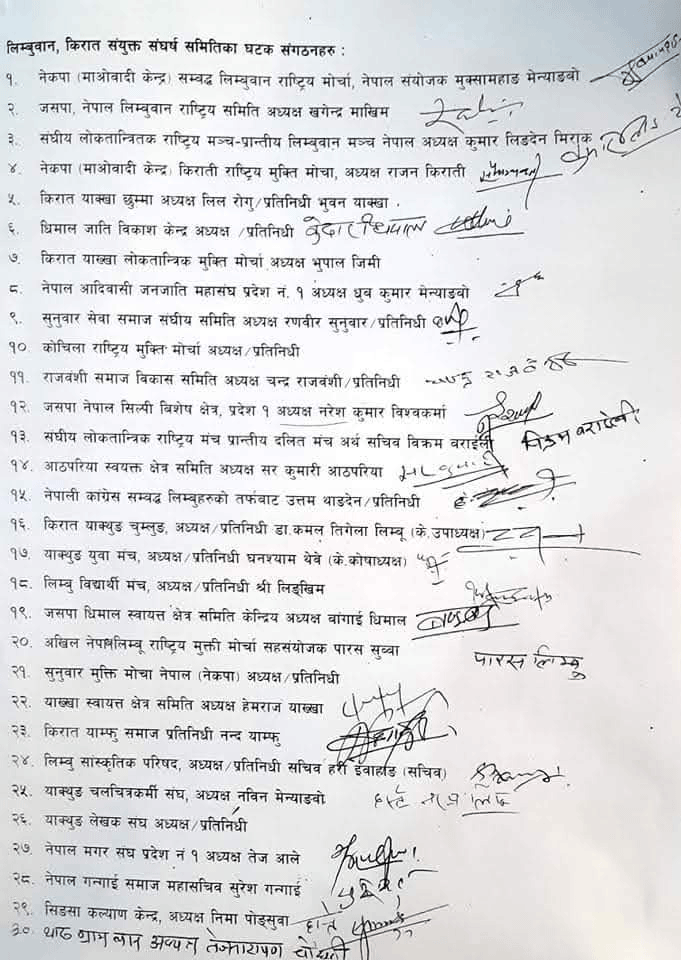 लिम्बुवान, किरात संयुक्त संघर्ष समितिका घटक संगठनहरु :
१. नेकपा (माओवादी केन्द्र) सम्वद्ध लिम्बुवान राष्ट्रिय मोर्चा, नेपाल संयोजक मुक्सामहाङ मेन्याङवो
२. जसपा, नेपाल लिम्बुवान राष्ट्रिय समिति अध्यक्ष खगेन्द्र माखिम
३. संघीय लोकतान्त्रितक राष्ट्रिय मञ्च-प्रान्तीय लिम्बुवान मञ्च नेपाल अध्यक्ष कुमार लिङदेन मिराक
४. नेकपा (माओवादी केन्द्र) किराती राष्ट्रिय मुक्ति मोचा, अध्यक्ष राजन किराती
५. किरात याक्खा छुम्मा अध्यक्ष लिल रोगु/प्रतिनिधी भुवन याक्खा
६. धिमाल जाति विकाश केन्द्र अध्यक्ष /प्रतिनिधी
७. किरात याख्खा लोकतान्त्रिक मुक्ति मोर्चा अध्यक्ष भुपाल जिमी
८. नेपाल आदिवासी जनजाति महासंघ प्रदेश नं. १ अध्यक्ष धुव कुमार मेन्याङवो
९. सुनुवार सेवा समाज संघीय समिति अध्यक्ष रणवीर सुनुवार/प्रतिनिधी
१०. कोचिला राष्ट्रिय मुक्ति मोर्चा अध्यक्ष/प्रतिनिधी
११. राजवंशी समाज विकास समिति अध्यक्ष चन्द्र राजवंशी/प्रतिनिधी
१२. जसपा नेपाल सिल्पी बिशेष क्षेत्र, प्रदेश १ अध्यक्ष नरेश कुमार विश्वकर्मा
१३. संघीय लोकतान्त्रिक राष्ट्रिय मंच प्रान्तीय दलित मंच अर्थ सचिव विक्रम वराईली विक्रम वराईली
१४. आठपरिया स्वयक्त क्षेत्र समिति अध्यक्ष सर कुमारी आठपरिया
१५. नेपाली कांग्रेस सम्वद्ध लिम्बुहरुको तर्फवाट उत्तम थाङदेन/प्रतिनिधी
१६. किरात याक्थुङ चुम्लुङ, अध्यक्ष/प्रतिनिधी डा.कमल तिगेला लिम्बू (के.उपाध्यक्ष)
१७. याक्थुङ युवा मंच, अध्यक्ष/प्रतिनिधी घनश्याम थेवे (के.कोषाध्यक्ष)
१८. लिम्बु विद्यार्थी मंच, अध्यक्ष/प्रतिनिधी श्री लिङ्खिम
१९. जसपा धिमाल स्वायत्त क्षेत्र समिति केन्द्रिय अध्यक्ष वांगाई धिमाल
२०. अखिल नेपाललिम्बू राष्ट्रिय मुक्ती मोर्चा सहसंयोजक पारस सुव्वा पारस लिम्बु
२१. सुनुवार मुक्ति मोचा नेपाल (नेकपा) अध्यक्ष/प्रतिनिधी
२२. याख्खा स्वायत्त क्षेत्र समिति अध्यक्ष हेमराज याख्खा
२३. किरात याम्फु समाज प्रतिनिधी नन्द याम्फु
२४. लिम्बु सांस्कृतिक परिषद, अध्यक्ष/प्रतिनिधी सचिव हरी इवाहाङ (सचिव)
२५. याक्थुङ चलचित्रकर्मी संघ, अध्यक्ष नविन मेन्याङवो
२६. याक्थुङ लेखक संघ अध्यक्ष/प्रतिनिधी
२७. नेपाल मगर संघ प्रदेश नं १ अध्यक्ष तेज आले
२८. नेपाल गन्गाई समाज महासचिव सुरेश गन्गाई
२९. सिङसा कल्याण केन्द्र, अध्यक्ष निमा पोङ्सुवा
३०.